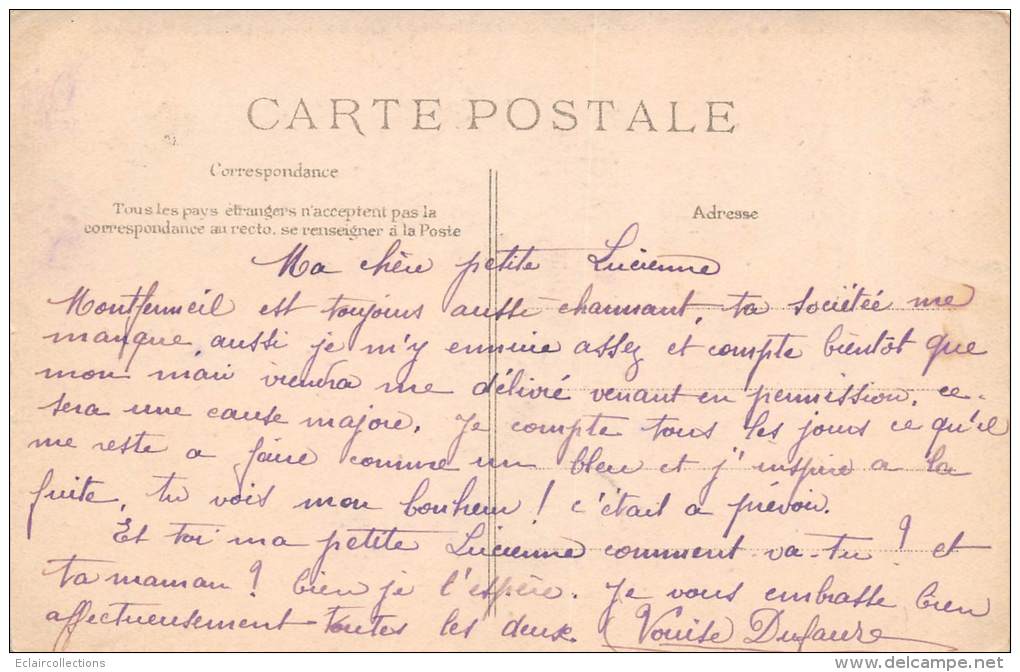 CARTE POSTALE
Correspondance
Tous les pays étrangers n'acceptent pas la
correspondance au recto. se renseigner à la Poste
Adresse
Ma chère petite Lucienne
Montfermeil est toujours aussi charmant, ta sociétée me
manque, aussi je m'y ennuie assez et compte bientôt que
mon mari viendra me délivré venant en permission, ce
sera une cause majore. Je compte tous les jours ce qu'il
me reste a faire comme un bleu et j'inspire a la
fuite, tu vois mon bonheur ! c'était a prévoir.
Et toi ma petite Lucienne comment va-tu ? et
ta maman ? bien je l'espère. Je vous embrasse bien
affectueusement toutes les deux. Dufaure
Eclaircollections
delcampe.net